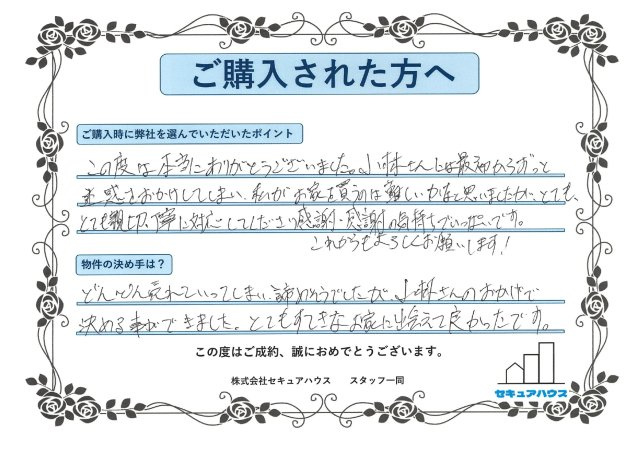 ご購入された方へ
ご購入時に弊社を選んでいただいたポイント
この度は本当にありがとうございました。小林さんには最初からずっと
迷惑をおかけしてしまい、私がお家を買うのは難しいかなと思いましたが、とても、
とても親切、丁寧に対応してくださり感謝、感謝の気持ちでいっぱいです。
これからもよろしくお願いします!
物件の決め手は?
どんどん売れていってしまい、諦めそうでしたが、小林さんのおかげで
決める事ができました。とてもすてきなお家に出会えて良かったです。
この度はご成約、誠におめでとうございます。
株式会社セキュアハウス スタッフ一同
セキュアハウス